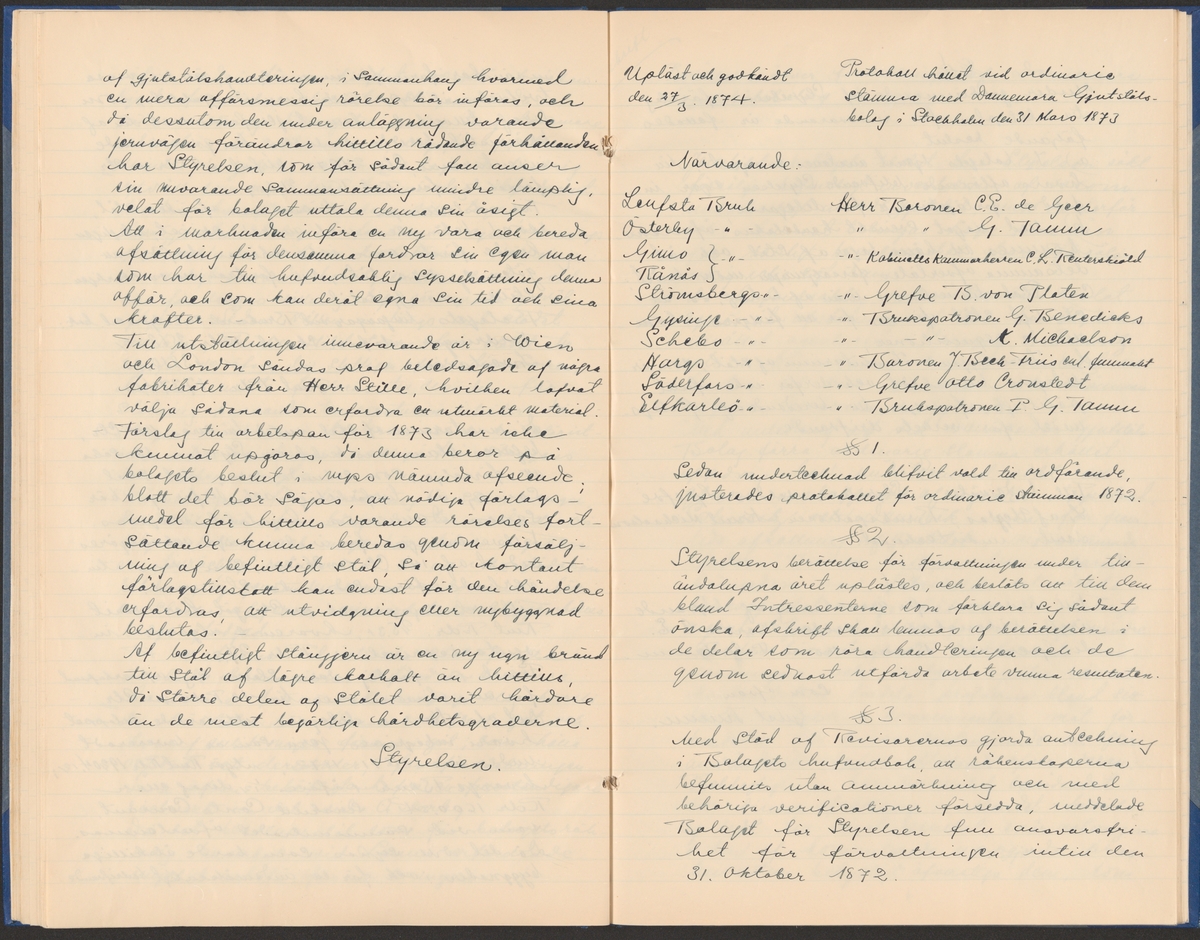 af gjutstålshandteringen, i sammanhang hvarmed
en mera affärsmessig rörelse bör införas, och
då dessutom den under anläggning varande
jernvägen förändrar hittills rådande förhållanden
har Styrelsen, som för sådant fall anser
sin nuvarande sammansättning mindre lämplig,
velat för bolaget uttala denna sin åsigt.
Att i marknaden införa en ny vara och bereda
afsättning för densamma fordrar sin egen man
som har till hufvudsaklig sysselsättning denna
affär, och som kan deråt egna sin tid och sina
krafter. –
Till utställningen innevarande år i Wien
och London sändas prof beledsagade af några
fabrikater från Herr Stille, hvilken lofvat
välja sådana som erfordra en utmärkt material.
Förslag till arbetsplan för 1873 har icke
kunnat upgöras, då denna beror på
bolagets beslut i nyss nämnda afseende;
blott det bör sägas, att nödiga förlags-
medel för hittills varande rörelses fort-
sättande kunna beredas genom försälj-
ning af befintligt stål, så att kontant
förlagstillskott kan endast för den händelse
erfordras, att utvidgning eller nybyggnad
beslutas. –
Af befintligt stångjern är en ny ugn bränd
till stål af lägre kolhalt än hittills,
då större delen af stålet varit hårdare
än de mest begärliga hårdhetsgraderne.
Styrelsen.
Upläst och godkändt
den 27/3. 1874.
Protokoll hållet vid ordinarie
stämma med Dannemora Gjutståls-
bolag i Stockholm den 31 Mars 1873
Närvarande:
Leufsta Bruk Herr Baronen C. E. de Geer
Österby -"- " " G. Tamm
Gimo } -"- -"- Kabinettskammarherren C. L. Reuterskiöld
Rånäs }
Strömsbergs -"- -"- Grefve B. von Platen
Gysinge -"- -"- Brukspatronen G. Benedicks
Schebo -"- -"- -"- A. Michaelson
Hargs -"- -"- Baronen J. Beck-Friis enl. fullmakt
Söderfors -"- -"- Grefve Otto Cronstedt
Elfkarleö -"- -"- Brukspatronen P. G. Tamm
§ 1.
Sedan undertecknad blifvit vald till ordförande,
justerades protokollet för ordinarie stämman 1872.
§ 2.
Styrelsens berättelse för förvaltningen under till-
ändalupna året uplästes, och beslöts att till dem
bland Intressenterne som förklara sig sådant
önska, afskrift skall lemnas af berättelsen i
de delar som röra handteringen och de
genom sednast utförda arbete vunna resultaten.
§ 3.
Med stöd af Revisorernas gjorda anteckning
i Bolagets hufvudbok, att räkenskaperna
befunnits utan anmärkning och med
behöriga verificationer försedda, meddelade
Bolaget för Styrelsen full ansvarsfri-
het för förvaltningen intill den
31. Oktober 1872.